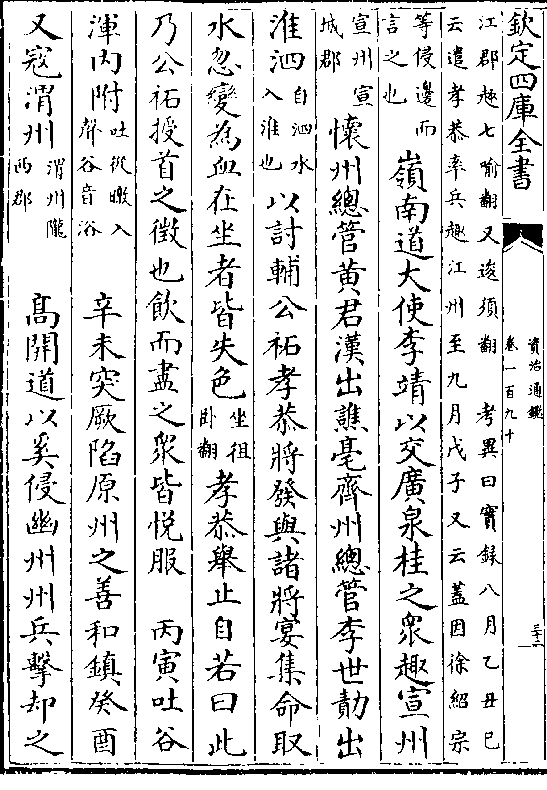 欽定四庫全書
資治通鑑
卷一百九十
三十二
江郡趣七喻翻又逡須翻　考異曰實録八月乙丑已
云遣孝恭率兵趣江州至九月戊子又云蓋因徐紹宗
等侵邊而
言之也
嶺南道大使李靖以交廣泉桂之衆趣宣州
宣州宣
城郡
懷州總管黄君漢出譙亳齊州總管李世勣出
淮泗
自泗水
入淮也
以討輔公祏孝恭將發與諸將宴集命取
水忽變為血在坐者皆失色
坐徂
卧翻
孝恭舉止自若曰此
乃公祏授首之徴也飲而盡之衆皆悦服　丙寅吐谷
渾内附
吐從暾入
聲谷音浴
辛未突厥陷原州之善和鎮癸酉
又寇渭州
渭州隴
西郡
高開道以奚侵幽州州兵擊却之